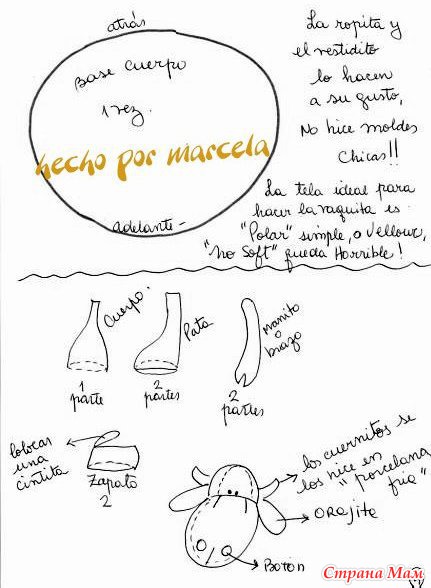 atrás
Base cuerpo
1 vez.
hecho por marcela
adelante-
La ropita y
el vestidito
lo hacen
a su gusto,
No hice moldes
Chicas!!
La tela ideal para
hacer la vaquita es
"Polar" simple, o Vellour,
"no Soft" queda Horrible!
Cuerpo.
1
parte
Pata
2
partes
Manito
o
brazo
2
partes
Colocar
una
cintita
Zapato
2
los cuernitos se
los hice en
"porcelana
fria"
orejita
Boton
Страна Мам